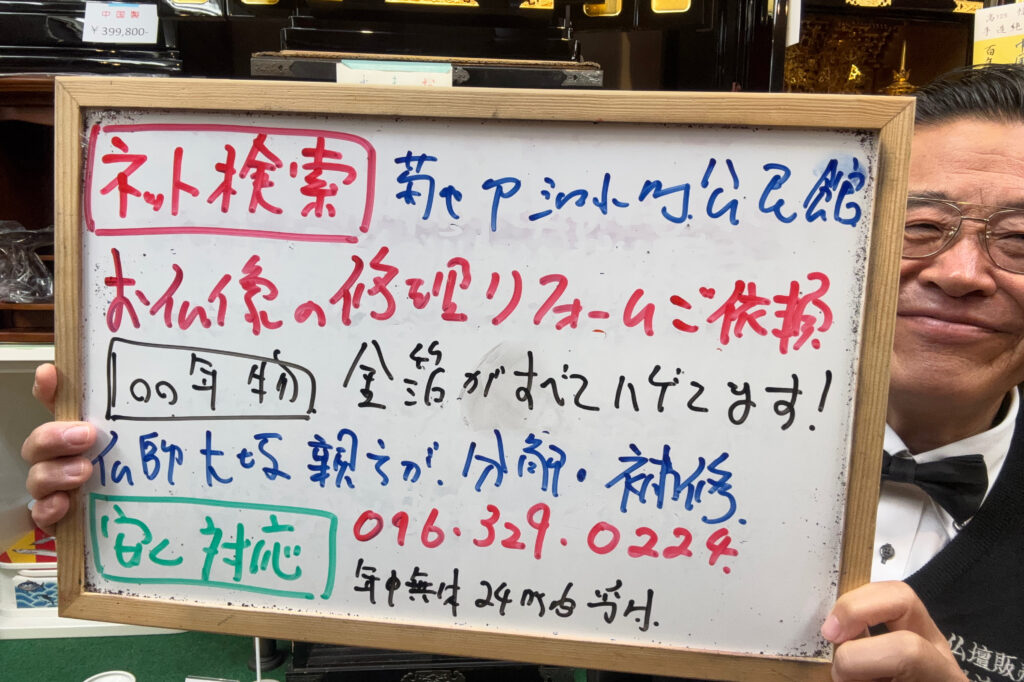 中国製
¥399,800-
ネット検索 菊セ甲 公民館
お仏像の修理リフォームご依頼
100年物 金箔がすべてハゲてます!
仏師大坂親方が、分解・補修
安心対応 096.329.0224
年中無休24時間受付
仏壇販